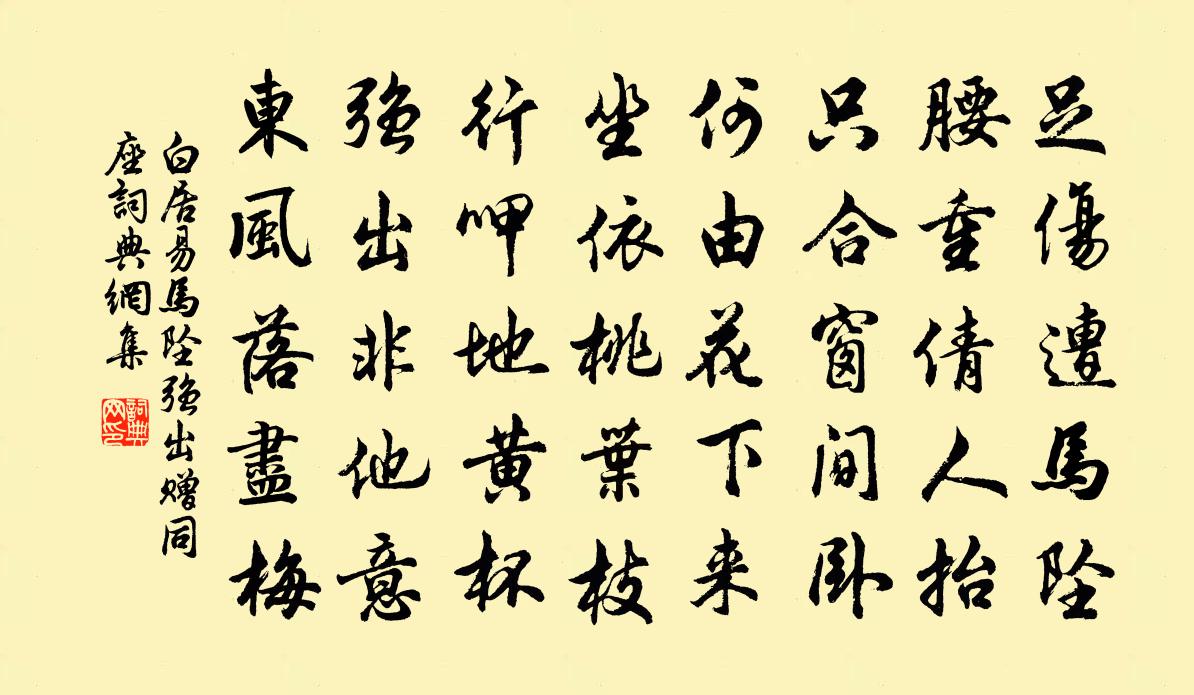 足傷遭馬坠
腰重倩人抬
只合窗間卧
何由花下来
坐依桃葉枝
行呷地黄杯
强出非他意
東風落盡梅
白居易馬坠强出贈同
座詞典網集
詞典
网印